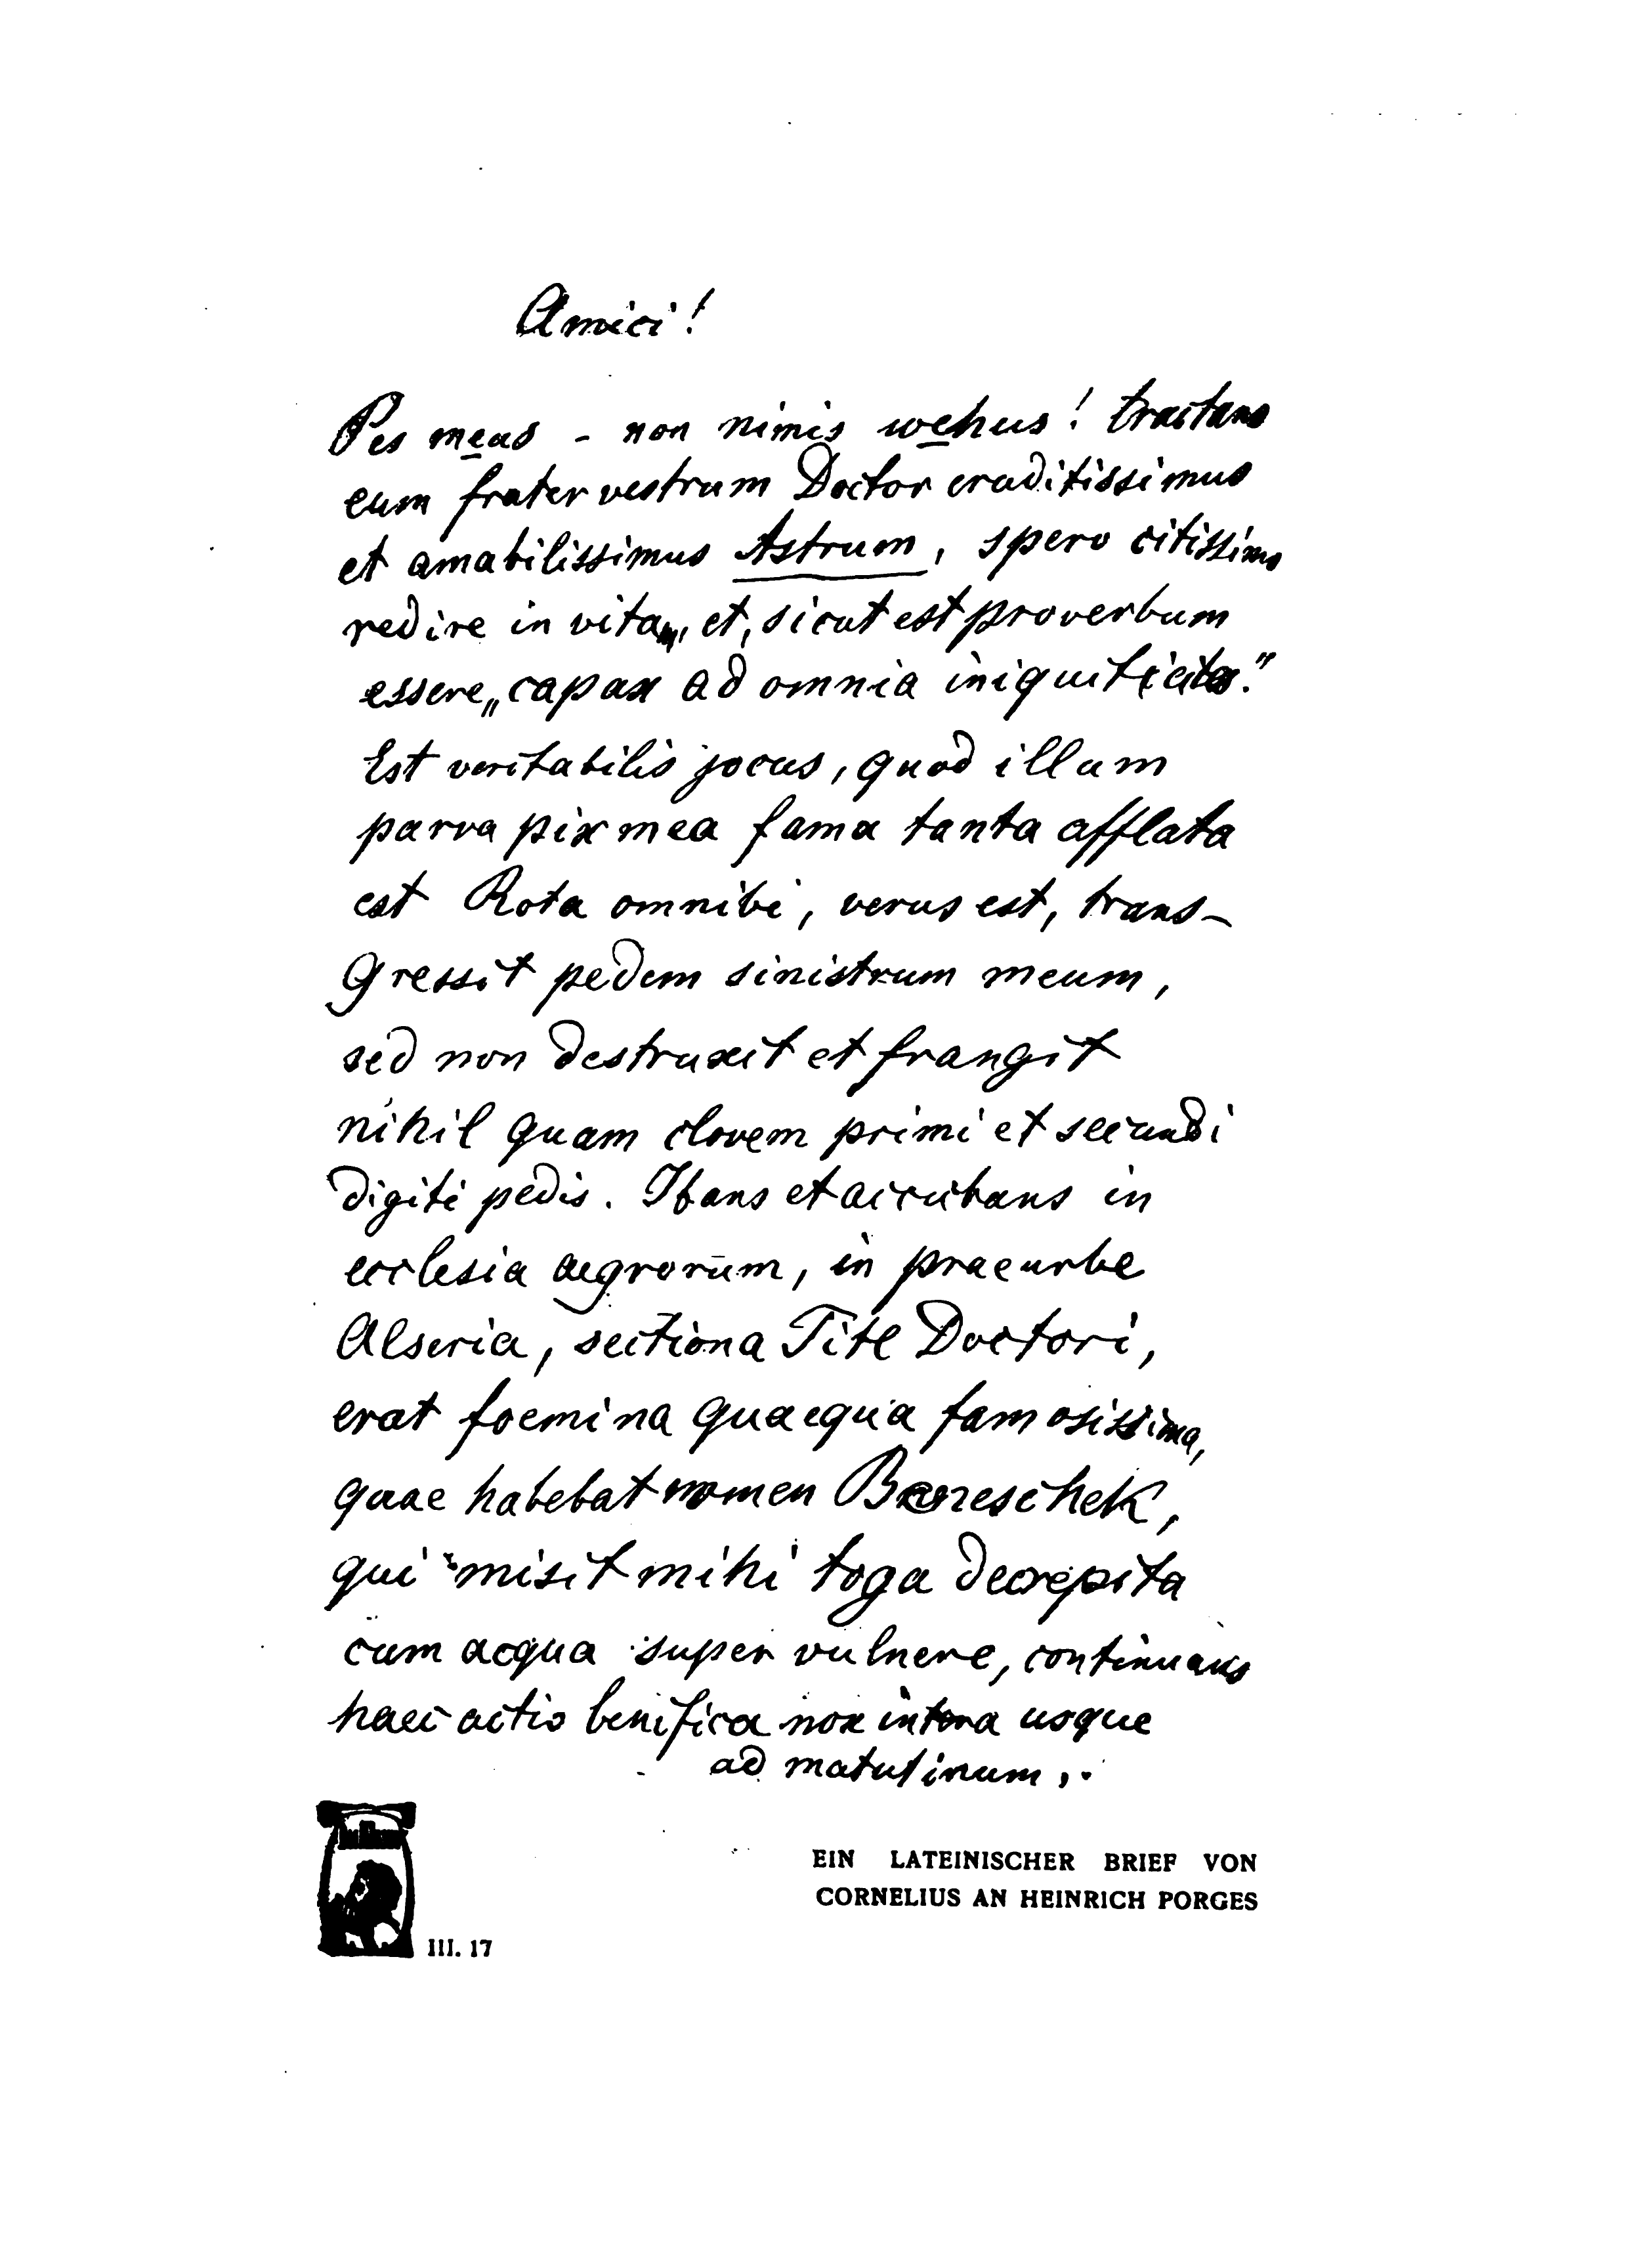 Amici!
Pes meus - non nimis wehus! tractans
eum frater vestrum Doctor eruditissimus
et amabilissimus Astrum, spero citissimo
redire in vitam, et, sicut est proverbum
essere „capax ad omnia
Est veritabilis jocus, quod illum
parva pix mea fama tanta afflata
est Rota omnibi, verus est, trans-
gressit pedem sinistrum meum,
sed non destruxit et frangit
nihil quam clovem primi et secundi
digiti pedis. Ibans et accubans in
ecclesia aegrorum, in praeurbe
Alseria, sectiona Titl Doctori,
erat foemina quaequa famosissima,
quae habebat nomen
qui misit mihi toga decrepita
cum acqua super vulnere, continuans
haec actio benifica nox intora usque
ad matutinum,.
EIN LATEINISCHER BRIEF VON
CORNELIUS AN HEINRICH PORGES
III. 17